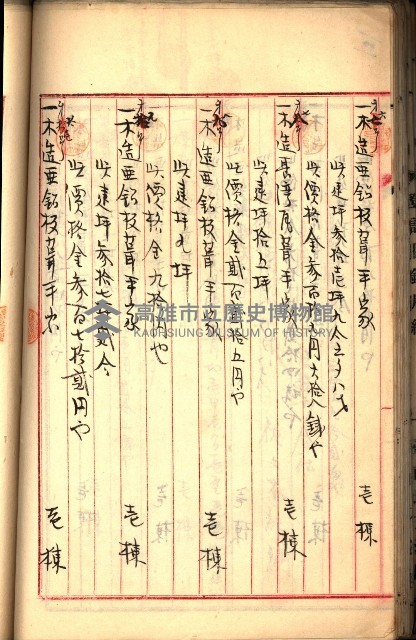 一木造亜鉛板葺平家 壱棟
此建坪参拾壱坪九合五勺八才
此價格金参百拾五円六拾八銭也
一木造 瓦葺平家 壱棟
此建坪拾五坪
此價格金貳百貳拾五円也
一木造亜鉛板葺平家 壱棟
此建坪九坪
此價格金九拾 也
一木造亜鉛板葺平家 壱棟
此建坪参拾七坪貳合
此價格金参百七拾貳円也
一木造亜鉛板葺平家 壱棟
高雄市立歷史博物館
KAOHSIUNG MUSEUM OF HISTORY